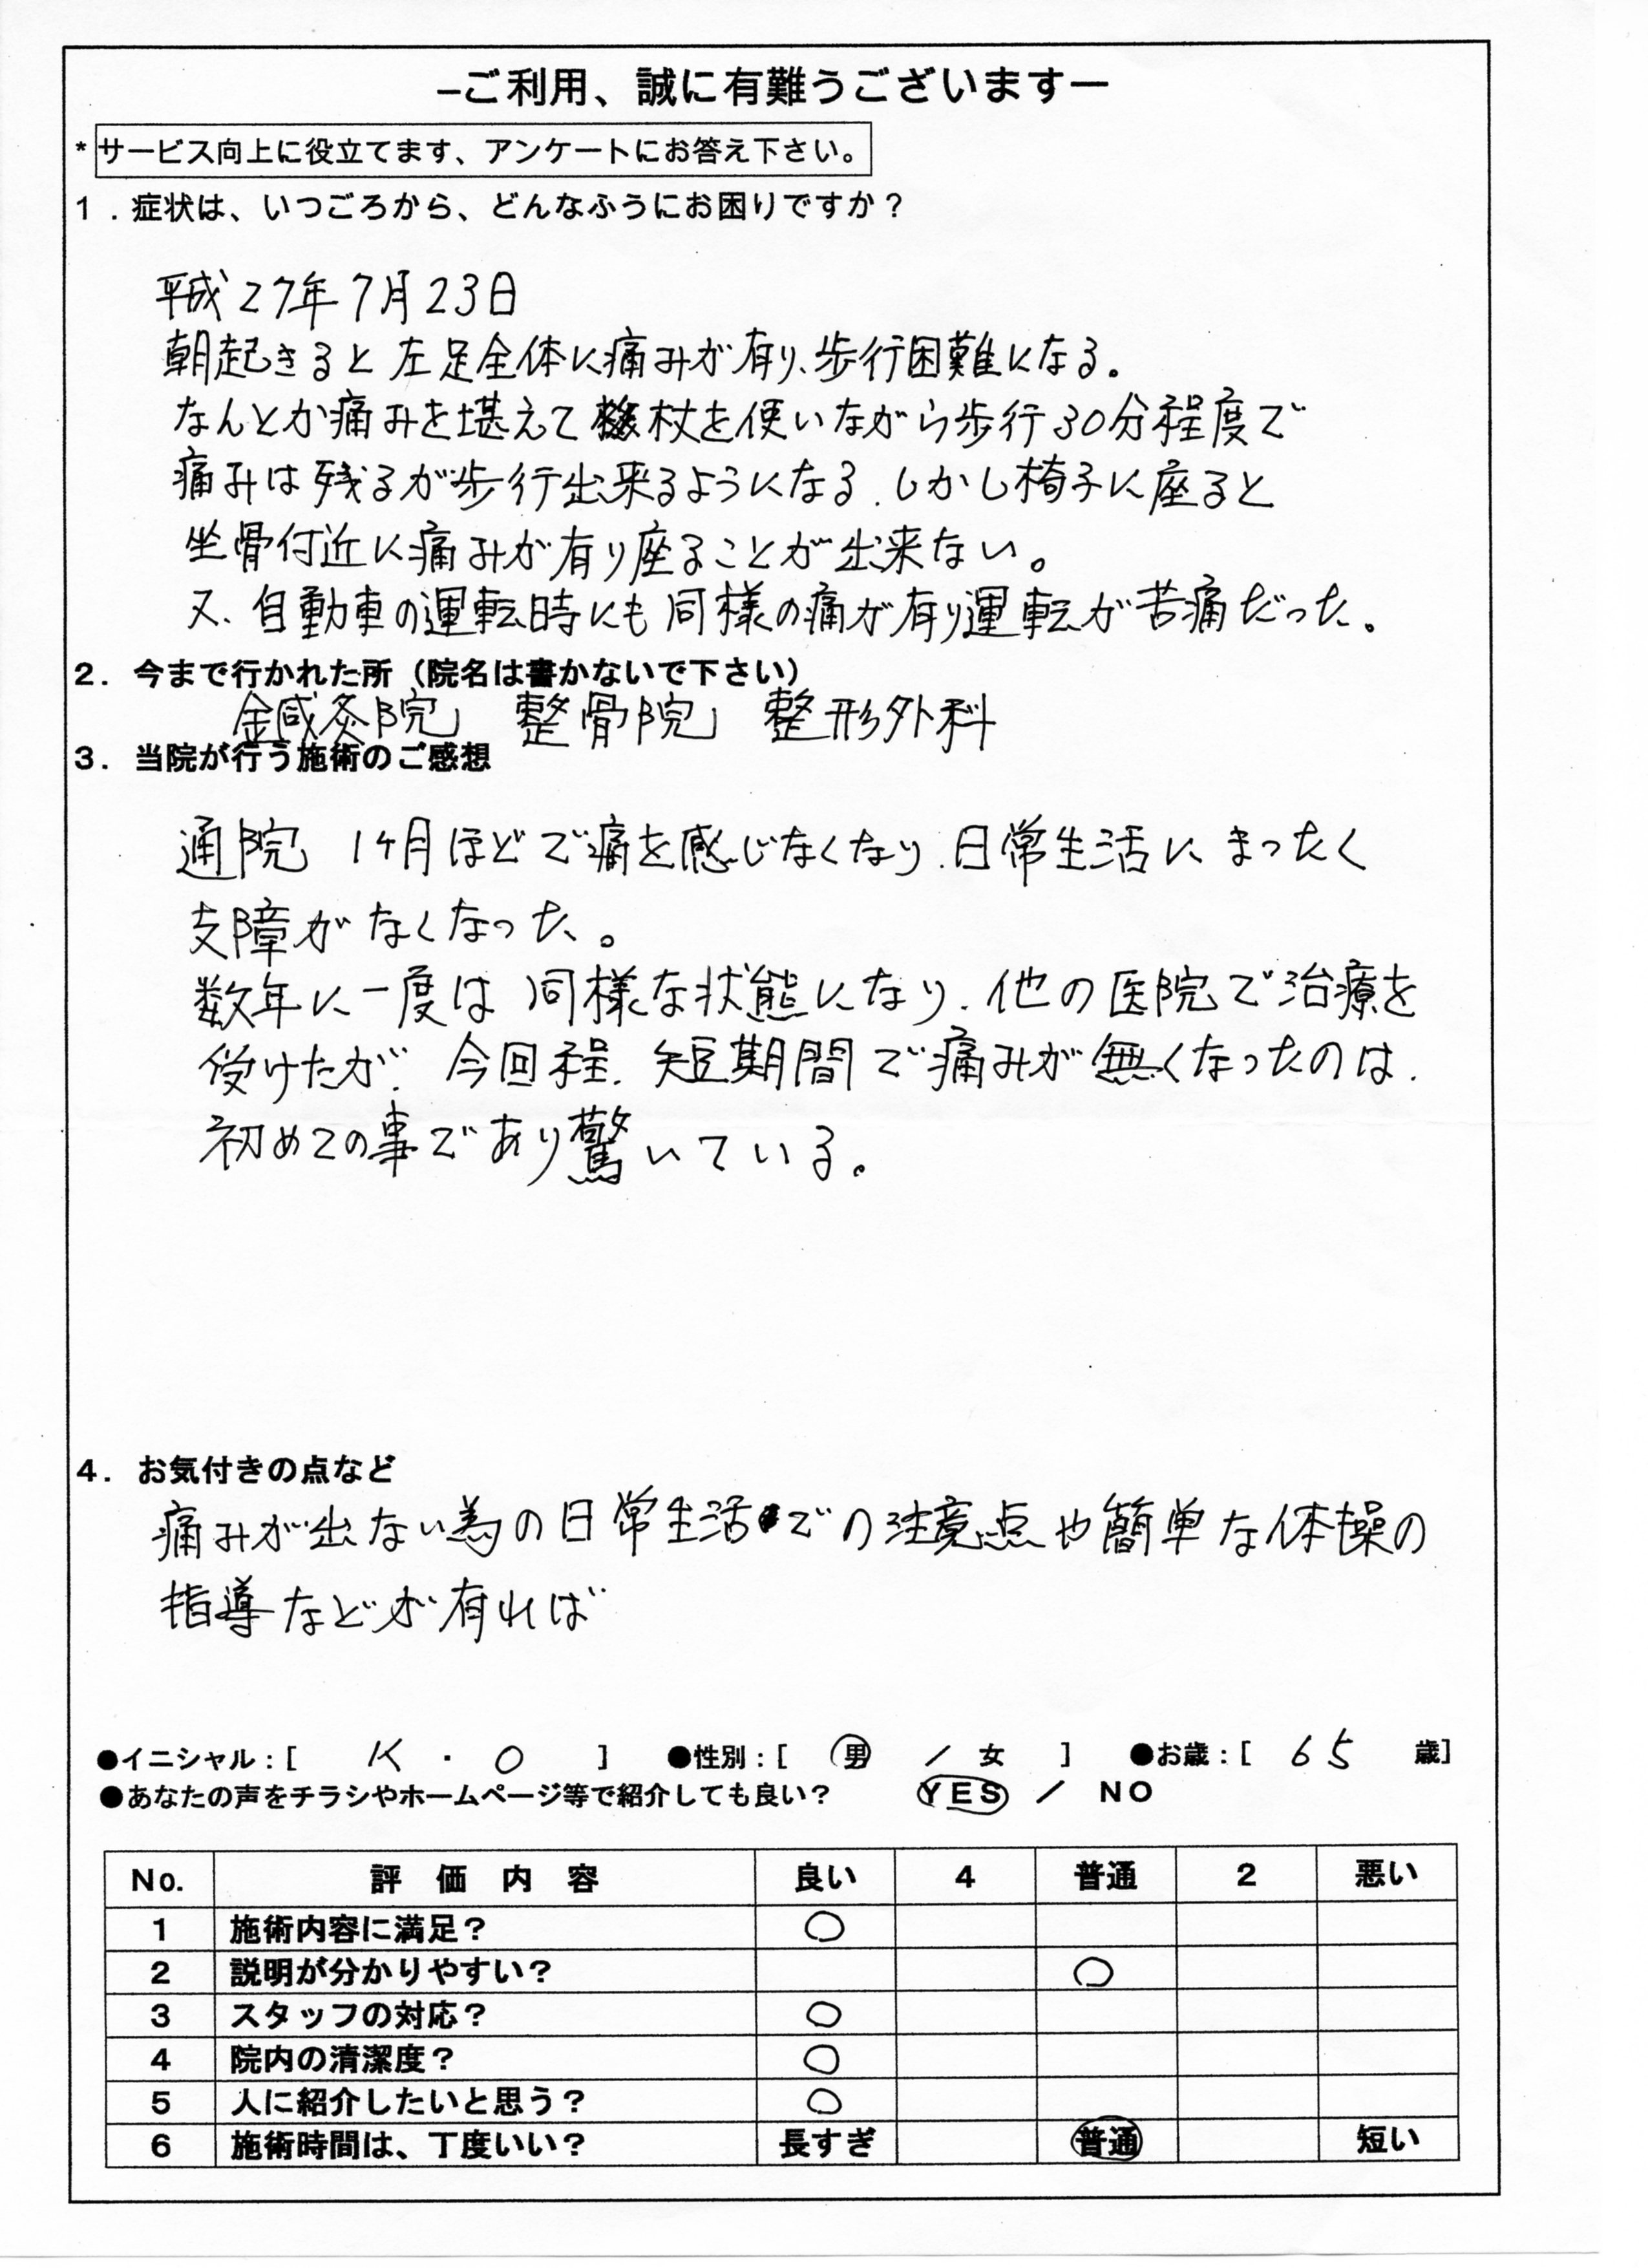 –ご利用、誠に有難うございますー
*サービス向上に役立てます、アンケートにお答え下さい。
1．症状は、いつごろから、どんなふうにお困りですか？
平成27年7月23日
朝起きると左足全体に痛みが有り、歩行困難になる。
なんとか痛みを堪えて杖を使いながら歩行30分程度で
痛みは残るが歩行出来るようになる、しかし椅子に座ると
坐骨付近に痛みが有り座ることが出来ない。
又、自動車の運転時にも同様の痛が有り運転が苦痛だった。
2．今まで行かれた所（院名は書かないで下さい）
鍼灸院 整骨院 整形外科
3．当院が行う施術のご感想
通院 1ヶ月ほどで痛を感じなくなり、日常生活にまったく
支障がなくなった。
数年に一度は同様な状態になり、他の医院で治療を
受けたが、今回程、短期間で痛みが無くなったのは、
初めての事であり驚いている。
4．お気付きの点など
痛みが出ない為の日常生活での注意点や簡単な体操の
指導などが有れば
●イニシャル：[ K・O ] ●性別：[ 男 ／ 女 ] ●お歳：[ 65 歳]
●あなたの声をチラシやホームページ等で紹介しても良い？ YES ／ NO
No. 評価内容 良い 4 普通 2 悪い
1 施術内容に満足？ ○
2 説明が分かりやすい？ ○
3 スタッフの対応？ ○
4 院内の清潔度？ ○
5 人に紹介したいと思う？ ○
6 施術時間は、丁度いい？ 長すぎ 普通 短い